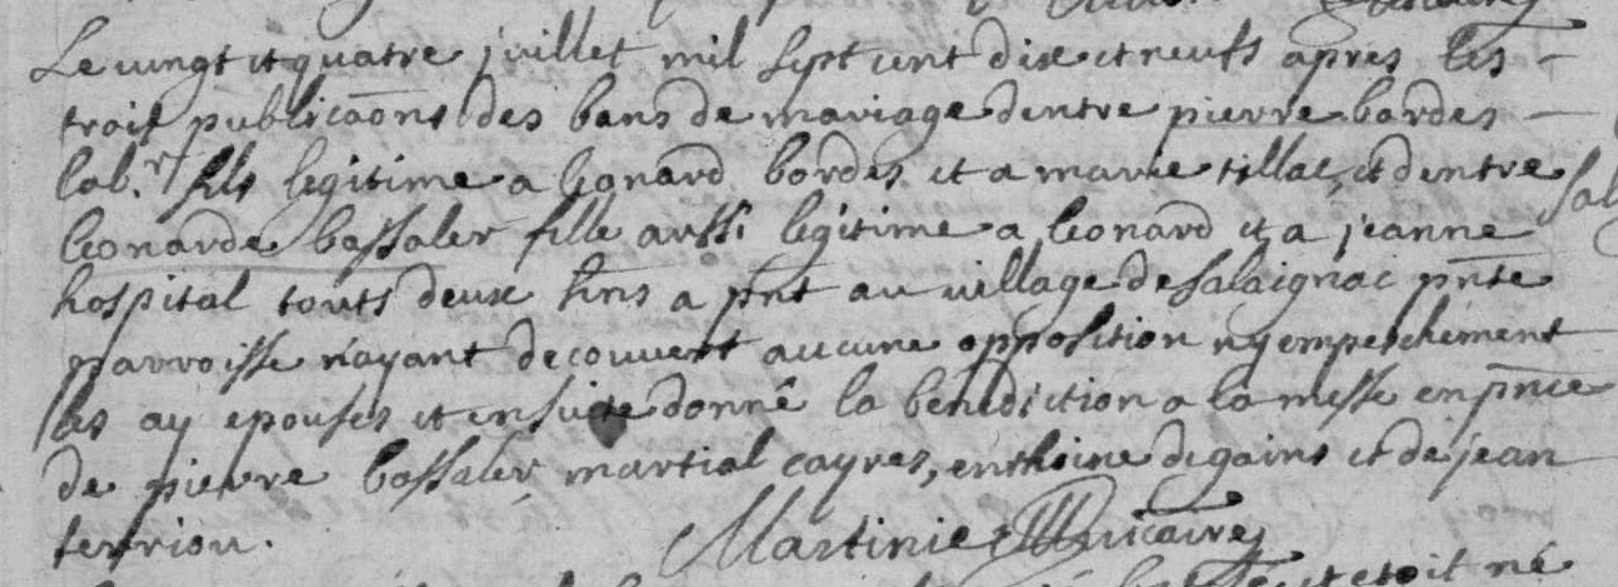 Le vingt et quatre juillet mil sept cent dix et neufs apres les
trois publicaõns des bans de mariage dentre pierre bordes
lab.r fils legitime a leonard bordes et a marie tillac, et dentre
leonarde bassaler fille aussi legitime a leonard et a jeanne
hospital touts deux hñs a pñt au village de salaignac pñte
parroisse n'ayant decouvert aucune opposition ny empeschement
les ay epouses et ensuite donné la benediction a la messe en pñce
de pierre bassaler, martial cayres, enthoine degains et de jean
terriou.
Martinie vicaire
et etoit né